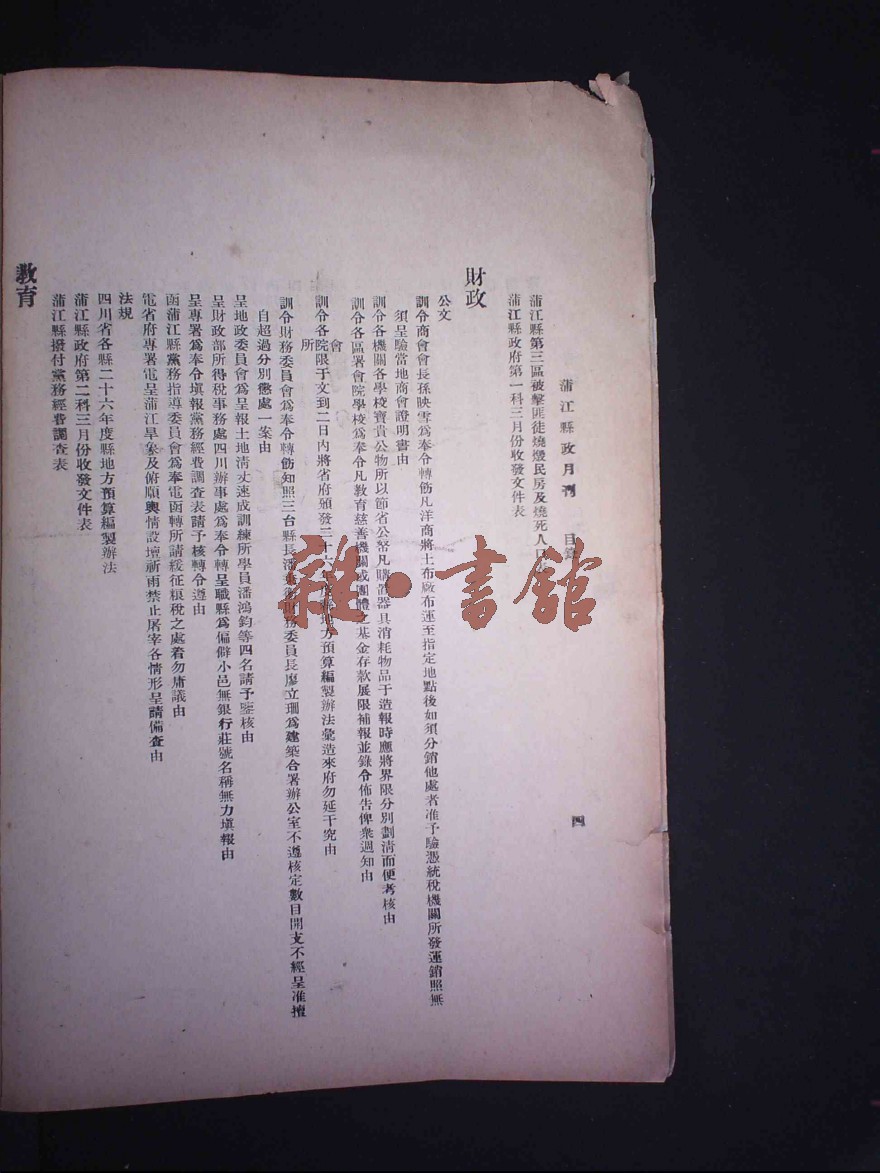 蒲江縣政月刊 目錄 四
蒲江縣第三區被擊匪徒燒燬民房及燒死人口
蒲江縣政府第一科三月份收發文件表
財政
公文
訓令商會會長孫映雪爲奉令轉飭凡洋商將土布廠布運至指定地點後如須分銷他處者准予驗憑統稅機關所發運銷照無
須呈驗當地商會證明書由
訓令各機關各學校寶貴公物所以節省公帑凡購置器具消耗物品于造報時應將界限分別劃清而便考核由
訓令各區署會院學校爲奉令凡教育慈善機關或團體之基金存款展限補報並錄令佈告俾衆週知由
訓令各院會所限于文到二日內將省府頒發二十六年 地方預算編製辦法彙造來府勿延干究由
訓令財務委員會爲奉令轉飭知照三台縣長潘 財務委員長廖立珊爲建築合署辦公室不遵核定數目開支不經呈准擅
自超過分別懲處一案由
呈地政委員會爲呈報土地清丈速成訓練所學員潘鴻鈞等四名請予鑒核由
呈財政部所得稅事務處四川辦事處爲奉令轉呈職縣爲偏僻小邑無銀行莊號名稱無力填報由
呈專署爲奉令填報黨務經費調查表請予核轉令遵由
函蒲江縣黨務指導委員會爲奉電函轉所請緩征粮稅之處着勿庸議由
電省府專署電呈蒲江旱象及俯順輿情設壇祈雨禁止屠宰各情形呈請備查由
法規
四川省各縣二十六年度縣地方預算編製辦法
蒲江縣政府第二科三月份收發文件表
蒲江縣撥付黨務經費調查表
教育
雜·書館